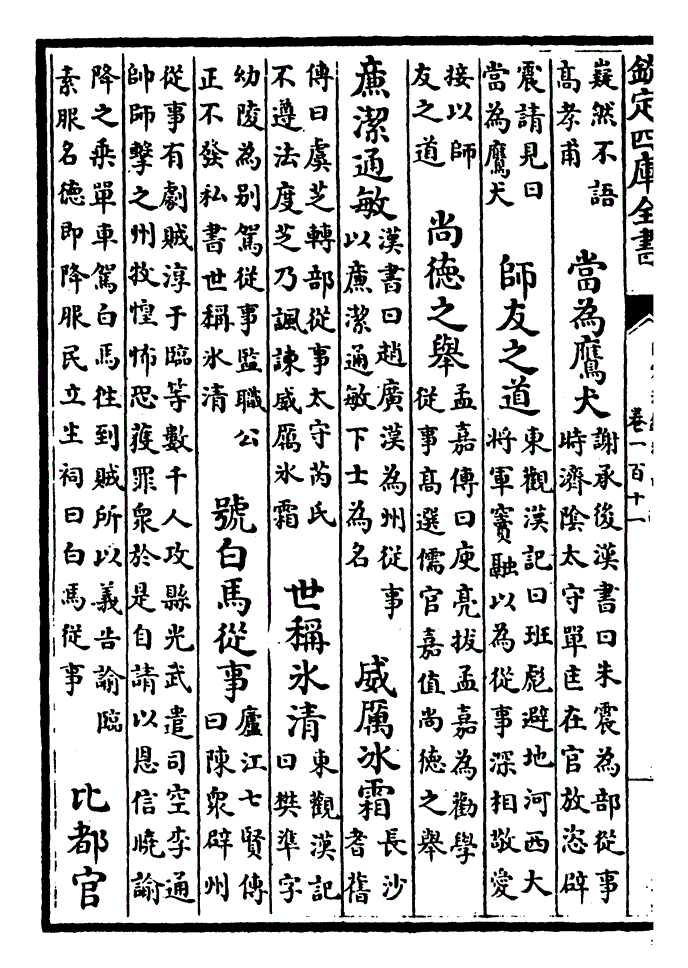 欽定四庫全書
卷一百十一
嶷然不語
高孝甫
當為鷹犬
謝承後漢書曰朱震為部從事
時濟陰太守單匡在官放恣辟
震請見曰
當為鷹犬
師友之道
東觀漢記曰班彪避地河西大
將軍竇融以為從事深相敬愛
接以師
友之道
尚德之舉
孟嘉傳曰庾亮拔孟嘉為勸學
從事高選儒官嘉值尚德之舉
廉潔通敏
漢書曰趙廣漢為州從事
以廉潔通敏下士為名
威厲冰霜
長沙
耆舊
傳曰虞芝轉部從事太守芮氏
不遵法度芝乃諷諫威厲氷霜
世稱氷清
東觀漢記
曰樊準字
幼陵為别駕從事監職公
正不發私書世稱氷清
號白馬從事
廬江七賢傳
曰陳衆辟州
從事有劇賊淳于臨等數千人攻縣光武遣司空李通
帥師擊之州牧惶怖恐獲罪衆於是自請以恩信曉諭
降之乘單車駕白馬往到賊所以義告諭臨
素服名德即降服民立生祠曰白馬從事
比都官